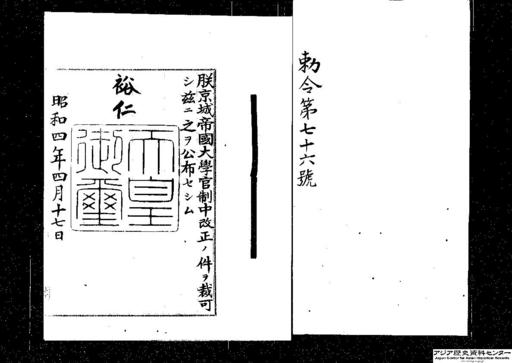 勅令第七十六號
朕京城帝國大學官制中改正ノ件ヲ裁可
シ茲ニ之ヲ公布セシム
裕仁
天皇
御璽
昭和四年四月十七日
アジア歴史資料センター
Japan Center for Asian Historical Records